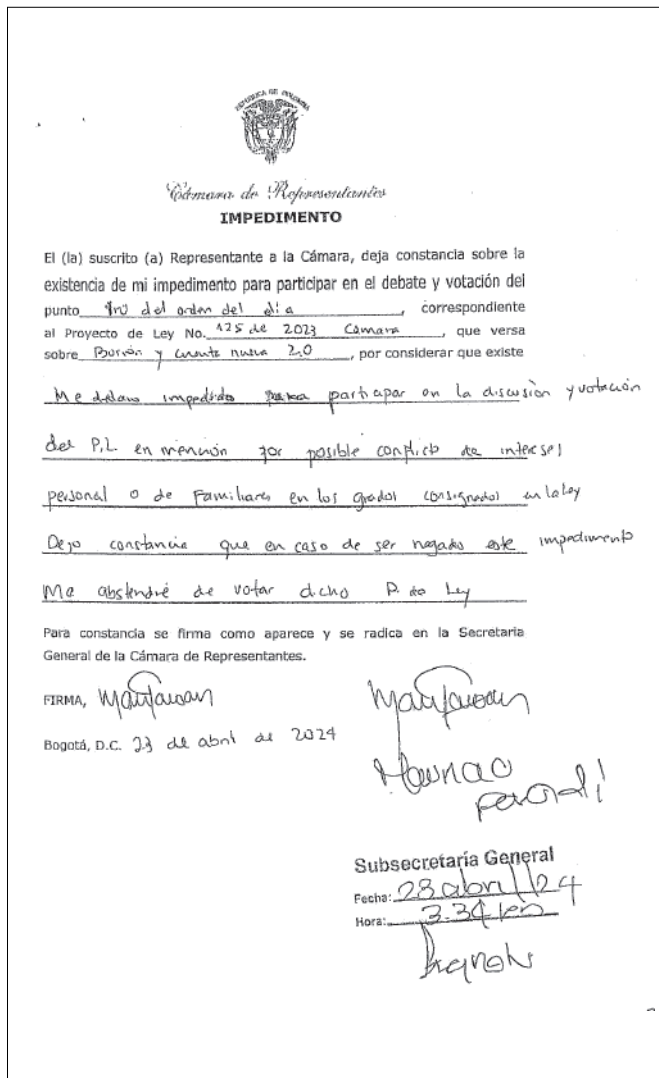 REPUBLICA DE COLOMBIA
Cámara de Representantes
IMPEDIMENTO
El (la) suscrito (a) Representante a la Cámara, deja constancia sobre la
existencia de mi impedimento para participar en el debate y votación del
punto del orden del día, correspondiente
al Proyecto de Ley No. 125 de 2023 Camara, que versa
sobre Borrón y cuenta nueva 2.0, por considerar que existe
Me declaro impedido para participar en la discusión y votación
del P.L. en mención por posible conflicto de intereses
personal o de Familiares en los grados consignados en la ley
Dejo constancia que en caso de ser negado este impedimento
Me abstendré de votar dicho P. de Ley
Para constancia se firma como aparece y se radica en la Secretaria
General de la Cámara de Representantes.
FIRMA,
Bogotá, D.C. 23 de abril de 2024
Subsecretaría General
Fecha: 23 abril/24
Hora: 3:34